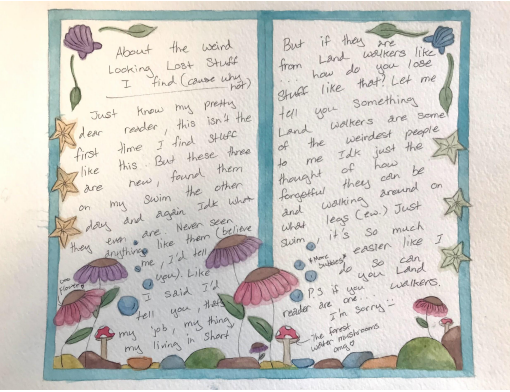 About the weird
Looking Lost Stuff
I find (cause why
not)
Just know my pretty
dear reader, this isn't the
first time I find stuff
like this. But these three
are new, found them
on my swim the other
day and again Idk what
they even are. Never seen
anything like them (believe
me, I'd tell
you). Like
I said I'd
tell you, that's
my job, my thing
my living in short
But if they are
from Land walkers like
... how do you lose
Stuff like that? Let me
tell you something
Land walkers are some
of the weirdest people
to me Idk just the
thought of how
forgetful they can be
and walking around on
what legs (ew.) Just
swim, it's so much
easier like I
do so can
you Land
walkers.
*More
bubbles*
P.S if you
reader are one..
I'm sorry
The forest
water mushrooms
omg